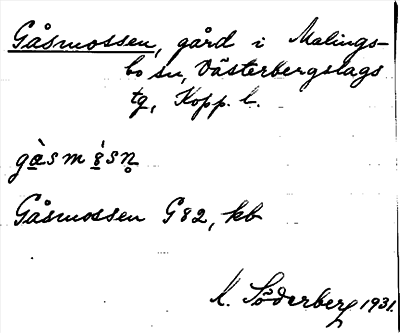 Gåsmossen, gård i Malings-
bo sn, Västerbergslags
tg, Kopp. l.
gàsm s̀n̥
Gåsmossen G82, kb
K. Söderberg 1931.